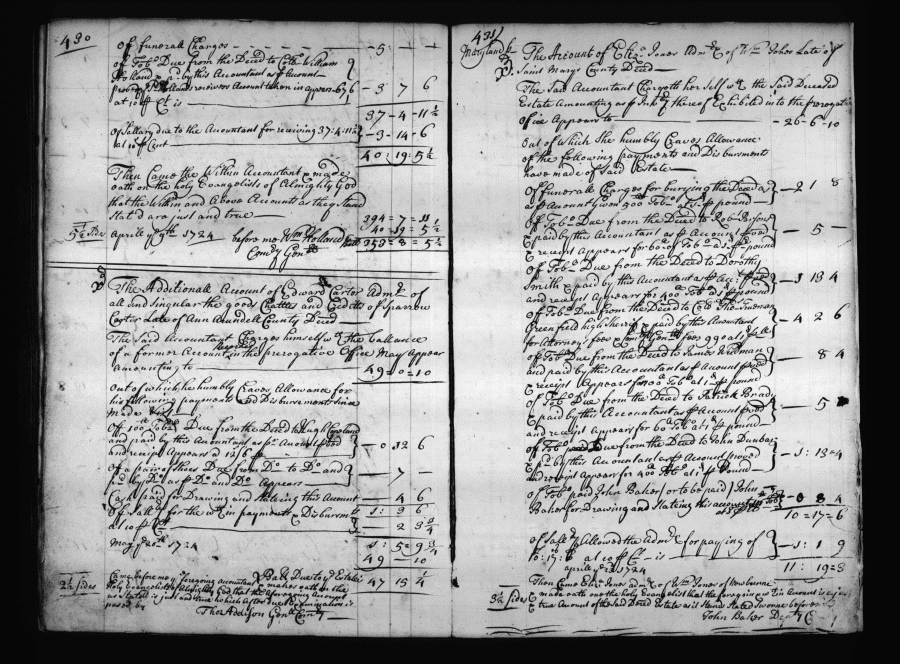 490
Of funerall Charges - - - - 5 : - -
of Tobo Due from the Deced to Collo William
Holland pd by this Accountant as p Account
proved & Hollands receives Account taken in appears 676
at 10s p Ct is — 3 7 6
37 - 4 - 11 1/2
Of Sallary due to the Accountant for receiving 37:4:11 1/2
at 10 p Cent — 3 - 14 - 6
40 : 19 : 5 1/2
Then Came the Within Accountant & made
oath on the holy Evangelists of Almighty God
that the Within and Above Account as they Stand
Stated are just and true
394 = 7 = 11
40 = 19 = 5 1/2
353 = 8 = 5 1/2
5 1/2 sides Aprile ye 9th 1724 before me Wm Holland
Comry Genll
The Additionall Account of Edward Carter Admr of
all and Singular the goods Chattles and Credetts of Sparrow
Carter Late of Ann Arundell County Deced
The Said Accountant Charges himself wth The ballance
of a former Account in the prerogative Office May Appear
Amounting to 49 = 0 = 10
Out of which he humbly Craves Allowance for
his following payments and Disbursements Since
made Vizt
Off 100 Tobo Due from the Deced to Hugh
and paid by this Accountant as p Account prod
and receipt Appears is 12/6 — 0 12 6
Of a pair of Shoes Due from Do to Do and
pd by Do as p Do and Do Appears — 7 —
Cash paid for Drawing and Stateing this Account — 4 6
Of Sally for the wth in payments & Disbursmts
1 : 3 6
at 10 p Ct — 2 3 3/4
May ye 20th 1724
1 : 5 = 9 3/4
49 — 10
Ball Due to ye Estate 47 15 1/4
2 1/2 sides Came before me ye foregoing accountant & makes oath on the
holy Evangelists of Almighty God that the aforegoing Account
as Stated is just and true which after due Examination is
passed by
Tho Addison Genll Comry
431
Maryland ss
The Account of Eliza Jones Admrx of Wm Jones Late of
Saint Marys County Deced
The Said Accountant Chargeth her Self wth the Said Deceased
Estate Amounting as p Inty thereof Exhibited into the prerogative
Office Appears to — 26 - 6 - 10
Out of Which She humbly Craves Allowance
of the following payments and Disbursments
have made of Said Estate
Of funerall Charges for burying the Deced
as p Account given 500 Tobo at 1d p pound — 2 1 8
Of Tobo Due from the Deced to Robt
& paid by this Accountant as p Account prod
& receipt Appears for 60 of Tobo at 1d p pound — 5 —
Of Tobo Due from the Deced to Dorothy
Smith & paid by this Accountant as p Acct prod
and receipt Appears for 400 Tobo at 1d p pound — 1 13 4
Of Tobo Due from the Deced to Collo Tho Trueman
Greenfeild high Sherif & paid by this Accountant
for Attorneys fees & fees 990 at 1d p lb — 4 2 6
of Tobo Due from the Deced to James
and paid by this Accountant as p Account prod
& receipt Appears for 100 Tobo at 1d p pound — 8 4
of Tobo Due from the Deced to Patrick Brady
& paid by this Accountant as p Account prod
and receipt Appears for 60 Tobo at 1d p pound — 5
of Tobo Due from the Deced to John Dunbar
& pd by this Accountant as p Account proved
and receipt Appears for 400 Tobo at 1d p pound — 1 : 13 = 4
of Tobo paid John Baker or to be paid John
Baker for Drawing and Stateing this account — 0 8 4
10 = 17 = 6
of Sallry Allowed the Admrx for paying of
10 : 17 : 6 at 10 p Ct is — 1 : 1 9
aprile 1724 11 : 19 = 8
Then Came Eliza Jones admrx of Wm Jones
3 1/2 sides made oath on the holy Evangelist that the foregoing Account is a just
& true Account of the Said Deced Estate as it Stands Stated Sworne before
John Baker Depty C